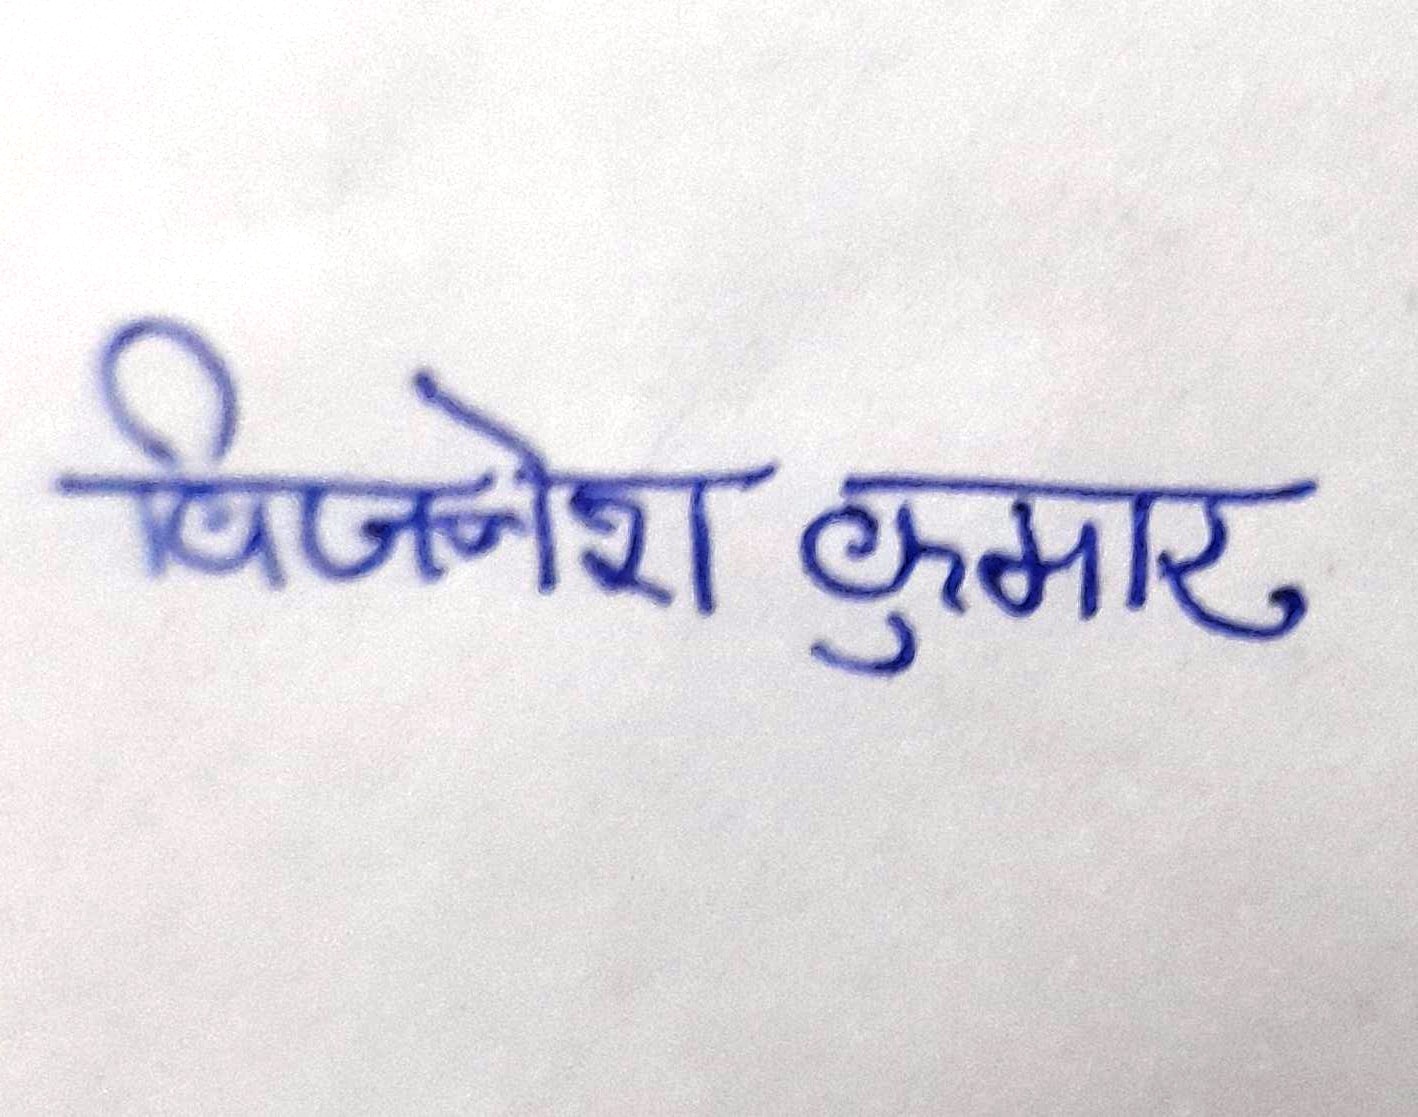 विजनेश कुमार